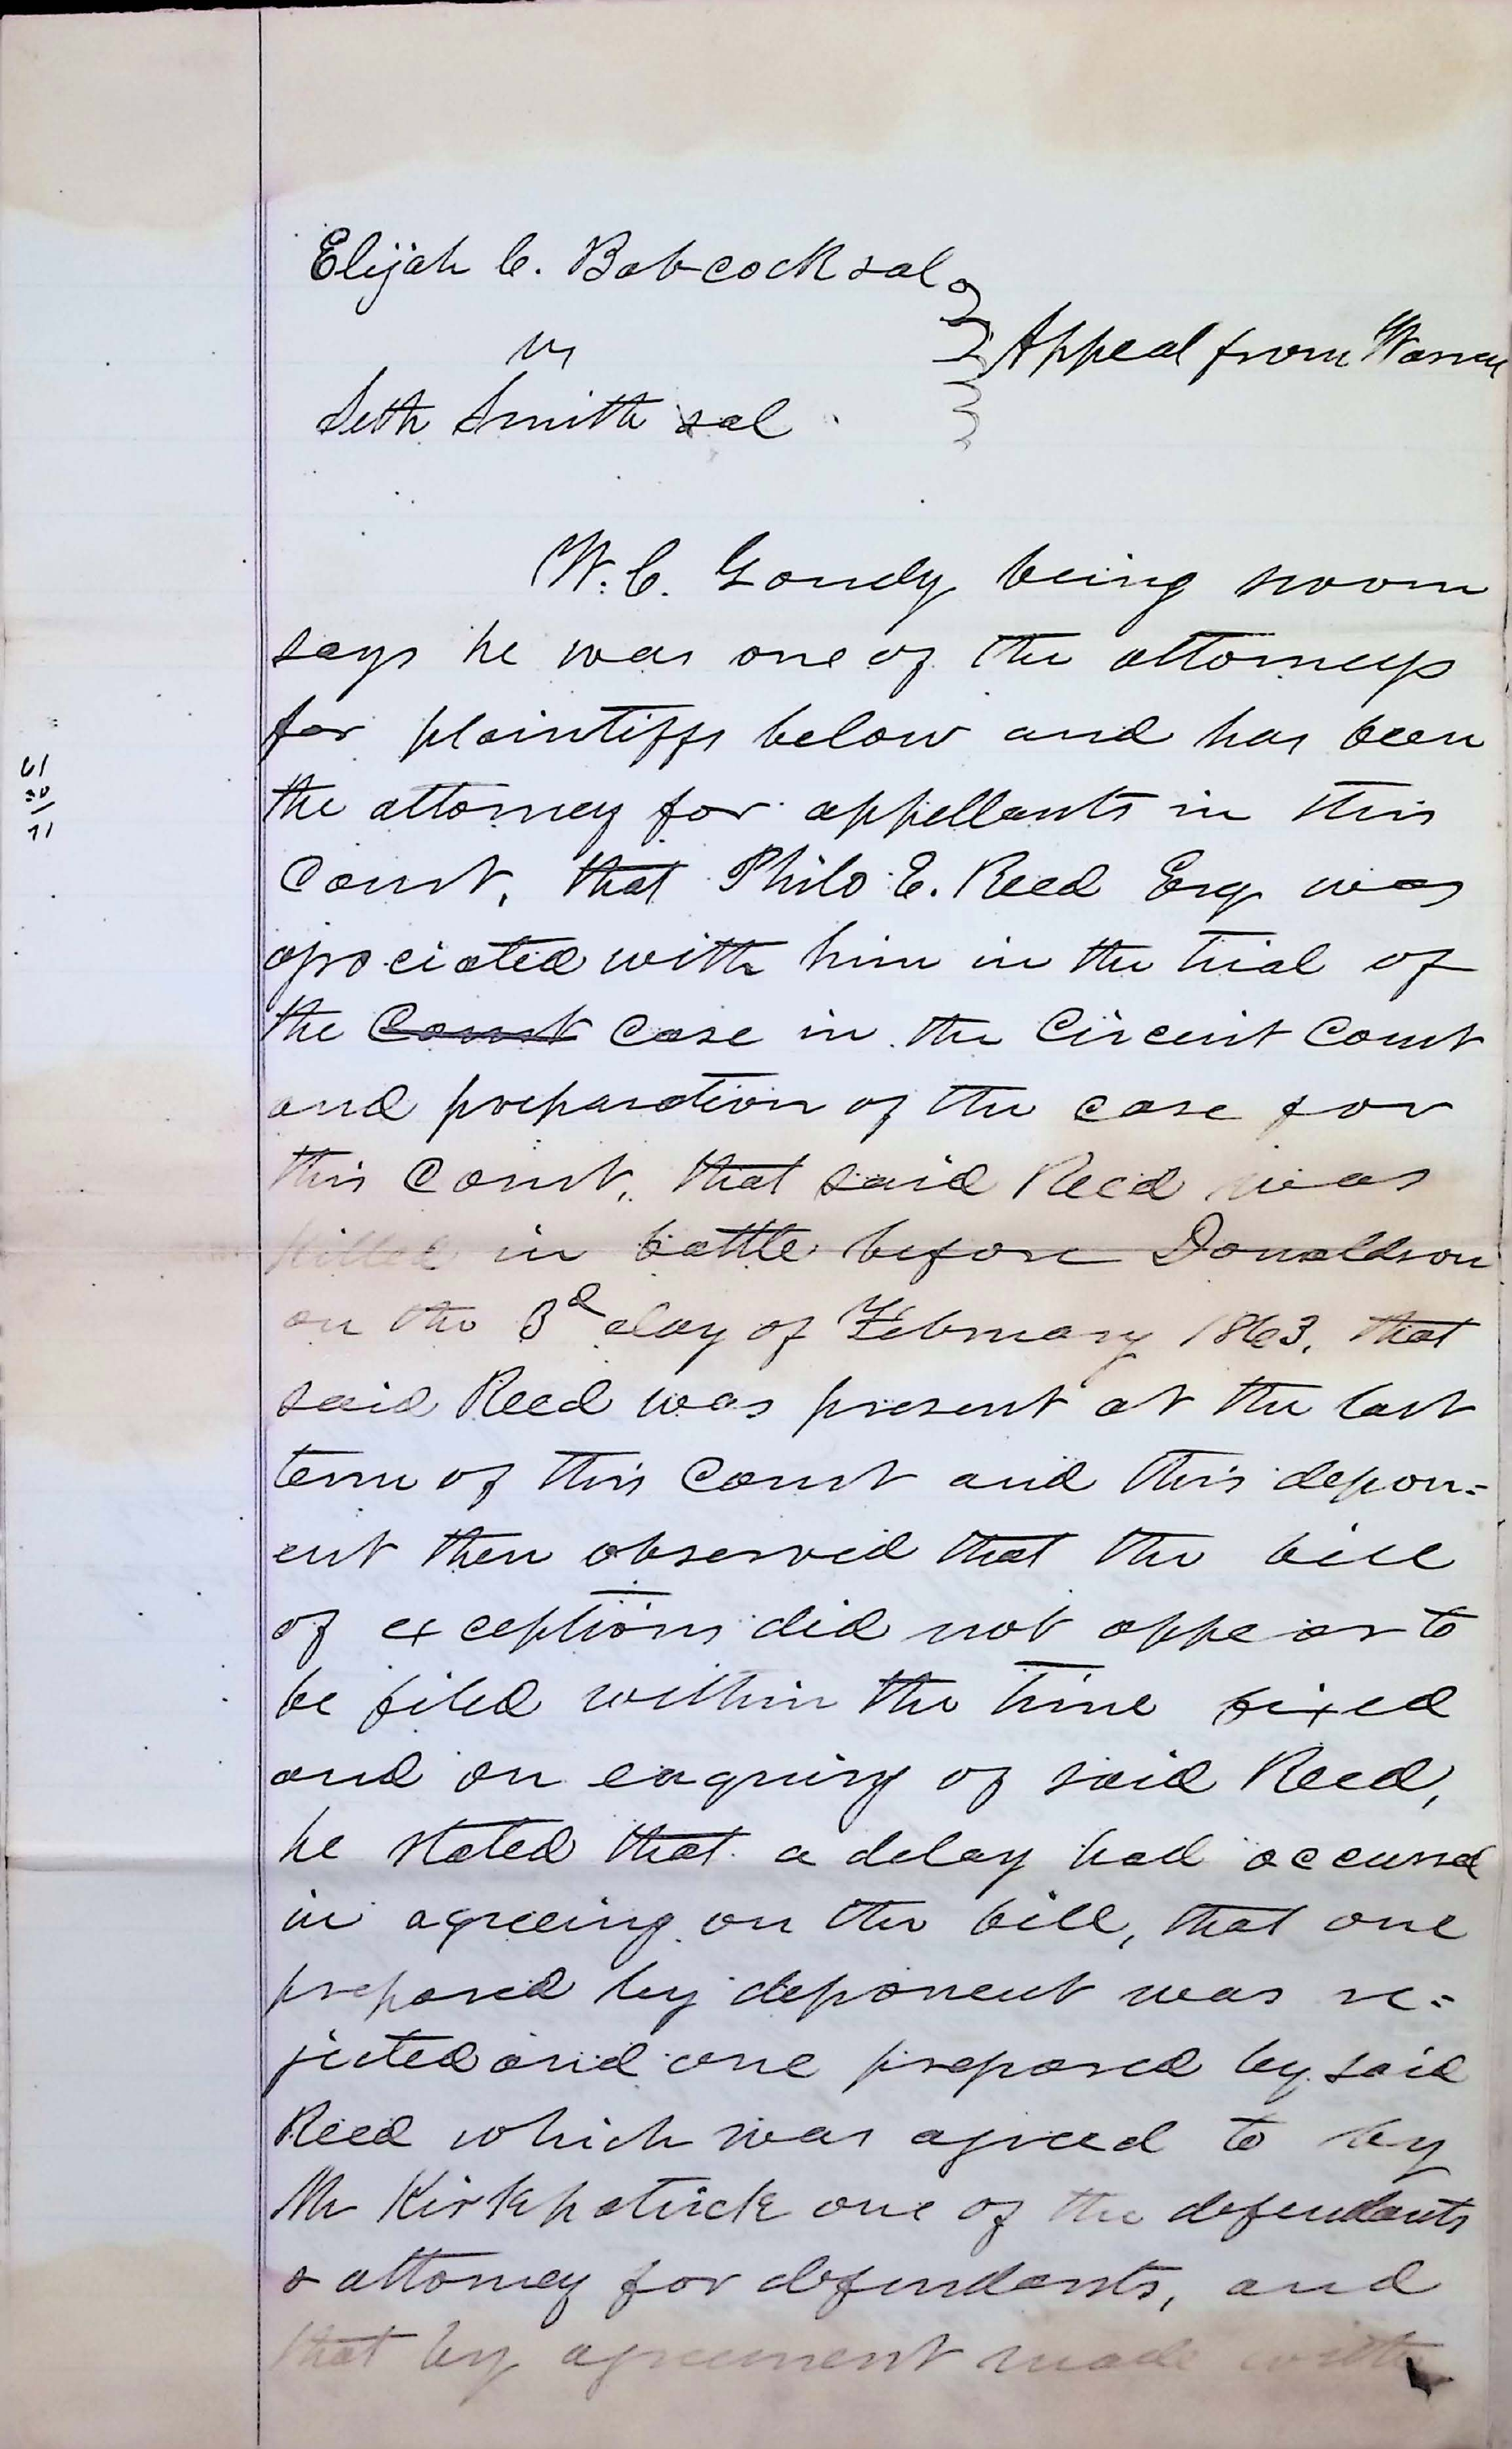 Elijah C. Babcock et al
vs
Appeal from Warren
Seth Smith et al
W. C. Goudy being sworn
says he was one of the attorneys
for plaintiffs below and has been
the attorney for appellants in this
Court, that Philo E. Reed Esq was
associated with him in the trial of
the Court case in the Circuit Court
and preparation of the case for
this Court, that said Reed was
killed in battle before Donaldson
on the 3d day of February 1863, that
said Reed was present at the last
term of this Court and this depon=
ent then observed that the bill
of exceptions did not appear to
be filed within the time fixed
and on enquiry of said Reed,
he stated that a delay had occurred
in agreeing on the bill, that one
prepared by deponent was re=
jected and one prepared by said
Reed which was agreed to by
Mr Kirkpatrick one of the defendants
& attorney for defendants, and
that by agreement made with